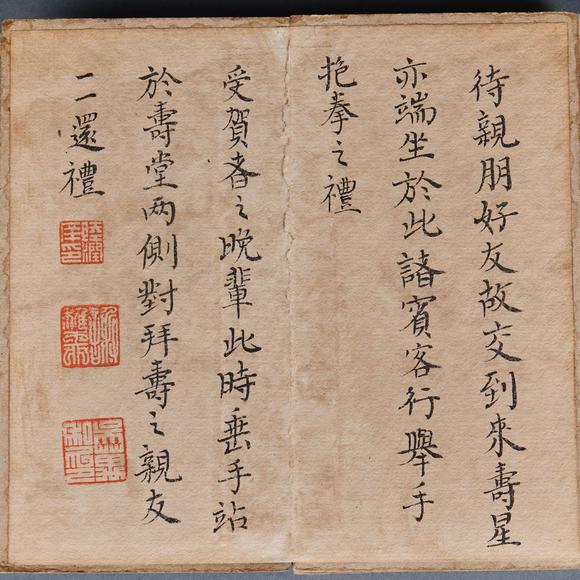 待親朋好友故交到來壽星
亦端坐於此諸賓客行舉手
抱拳之禮
受賀者之晚輩此時垂手站
於壽堂两側對拜壽之親友
二還禮